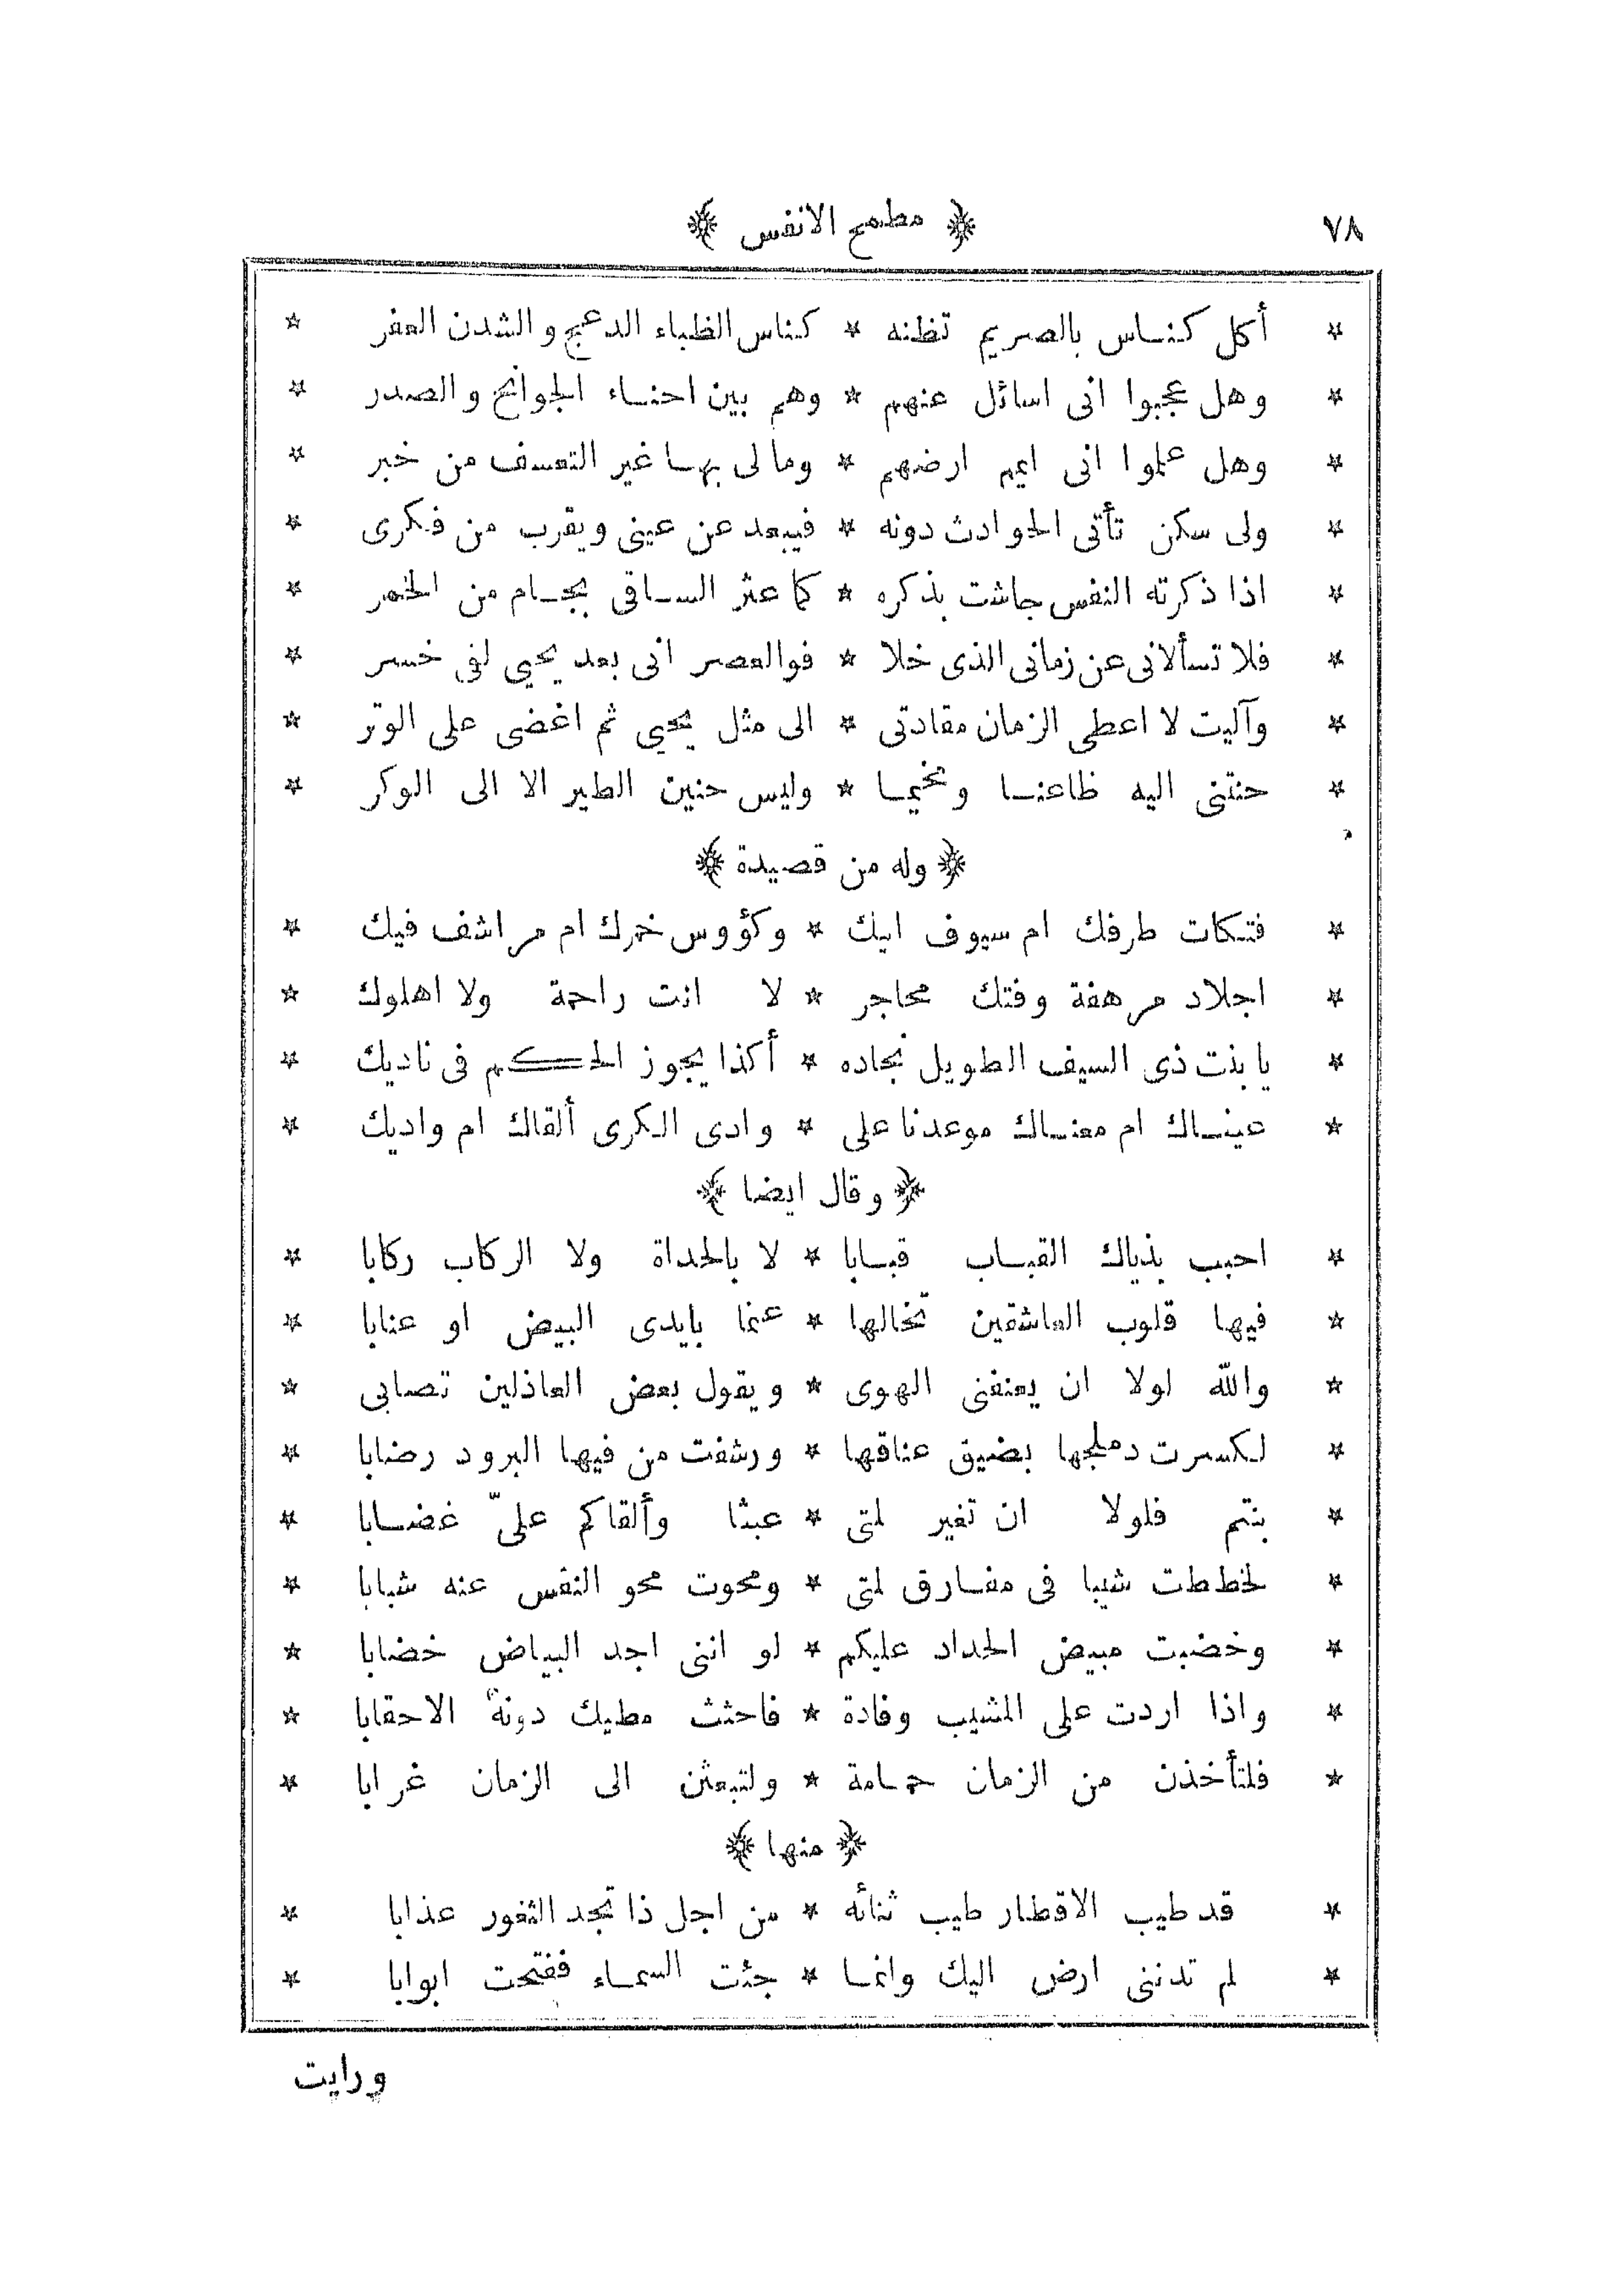 ٧٨ ﴿ مطمح الانفس ﴾
* أكل كنـاس بالصريم تظنه * كناس الظباء الدعج والشدن العفر *
* وهل عجبوا انى اسائل عنهم * وهم بين احنـاء الجوانح والصدر *
* وهل علموا انى ايمم ارضهم * ومالى بهـا غير التعسف من خبر *
* ولى سكن تأتى الحوادث دونه * فيبعد عن عينى ويقرب من فكرى *
* اذا ذكرته النفس جاشت بذكره * كما عثر السـاقى بجـام من الخمر *
* فلا تسألانى عن زمانى الذى خلا * فوالعصر انى بعد يحيى لفى خسر *
* وآليت لا اعطى الزمان مقادتى * الى مثل يحيى ثم اغضى على الوتر *
* حنتنى اليه ظاعنـا ومخيمـا * وليس حنين الطير الا الى الوكر *
﴿ وله من قصيدة ﴾
* فتكات طرفك ام سيوف ابيك * وكؤوس خمرك ام مراشف فيك *
* اجلاد مرهفة وفتك محاجر * لا انت راحمة ولا اهلوك *
* يا بنت ذى السيف الطويل نجاده * أكذا يجوز الحكم فى ناديك *
* عينـاك ام مغنـاك موعدنا على * وادى الكرى ألقاك ام واديك *
﴿ وقال ايضا ﴾
* احبب بذياك القبـاب قبـابا * لا بالحداة ولا الركاب ركابا *
* فيها قلوب العاشقين تخالها * عنما بايدى البيض او عنابا *
* والله لولا ان يعنفنى الهوى * ويقول بعض العاذلين تصابى *
* لكسرت دملجها بضيق عناقها * ورشفت من فيها البرود رضابا *
* بنتم فلولا ان تغير لمتى * عبثا وألقاكم علىّ غضـابا *
* لخططت شيبا فى مفـارق لمتى * ومحوت محو النقس عنه شبابا *
* وخضبت مبيض الحداد عليكم * لو اننى اجد البياض خضابا *
* واذا اردت على المشيب وفادة * فاحثث مطيك دونه الاحقابا *
* فلتأخذن من الزمان حمـامة * ولتبعثن الى الزمان غرابا *
﴿ منها ﴾
* قد طيب الاقطار طيب ثنائه * من اجل ذا تجد الثغور عذابا *
* لم تدننى ارض اليك وانمـا * جئت السمـاء ففتحت ابوابا *
ورايت